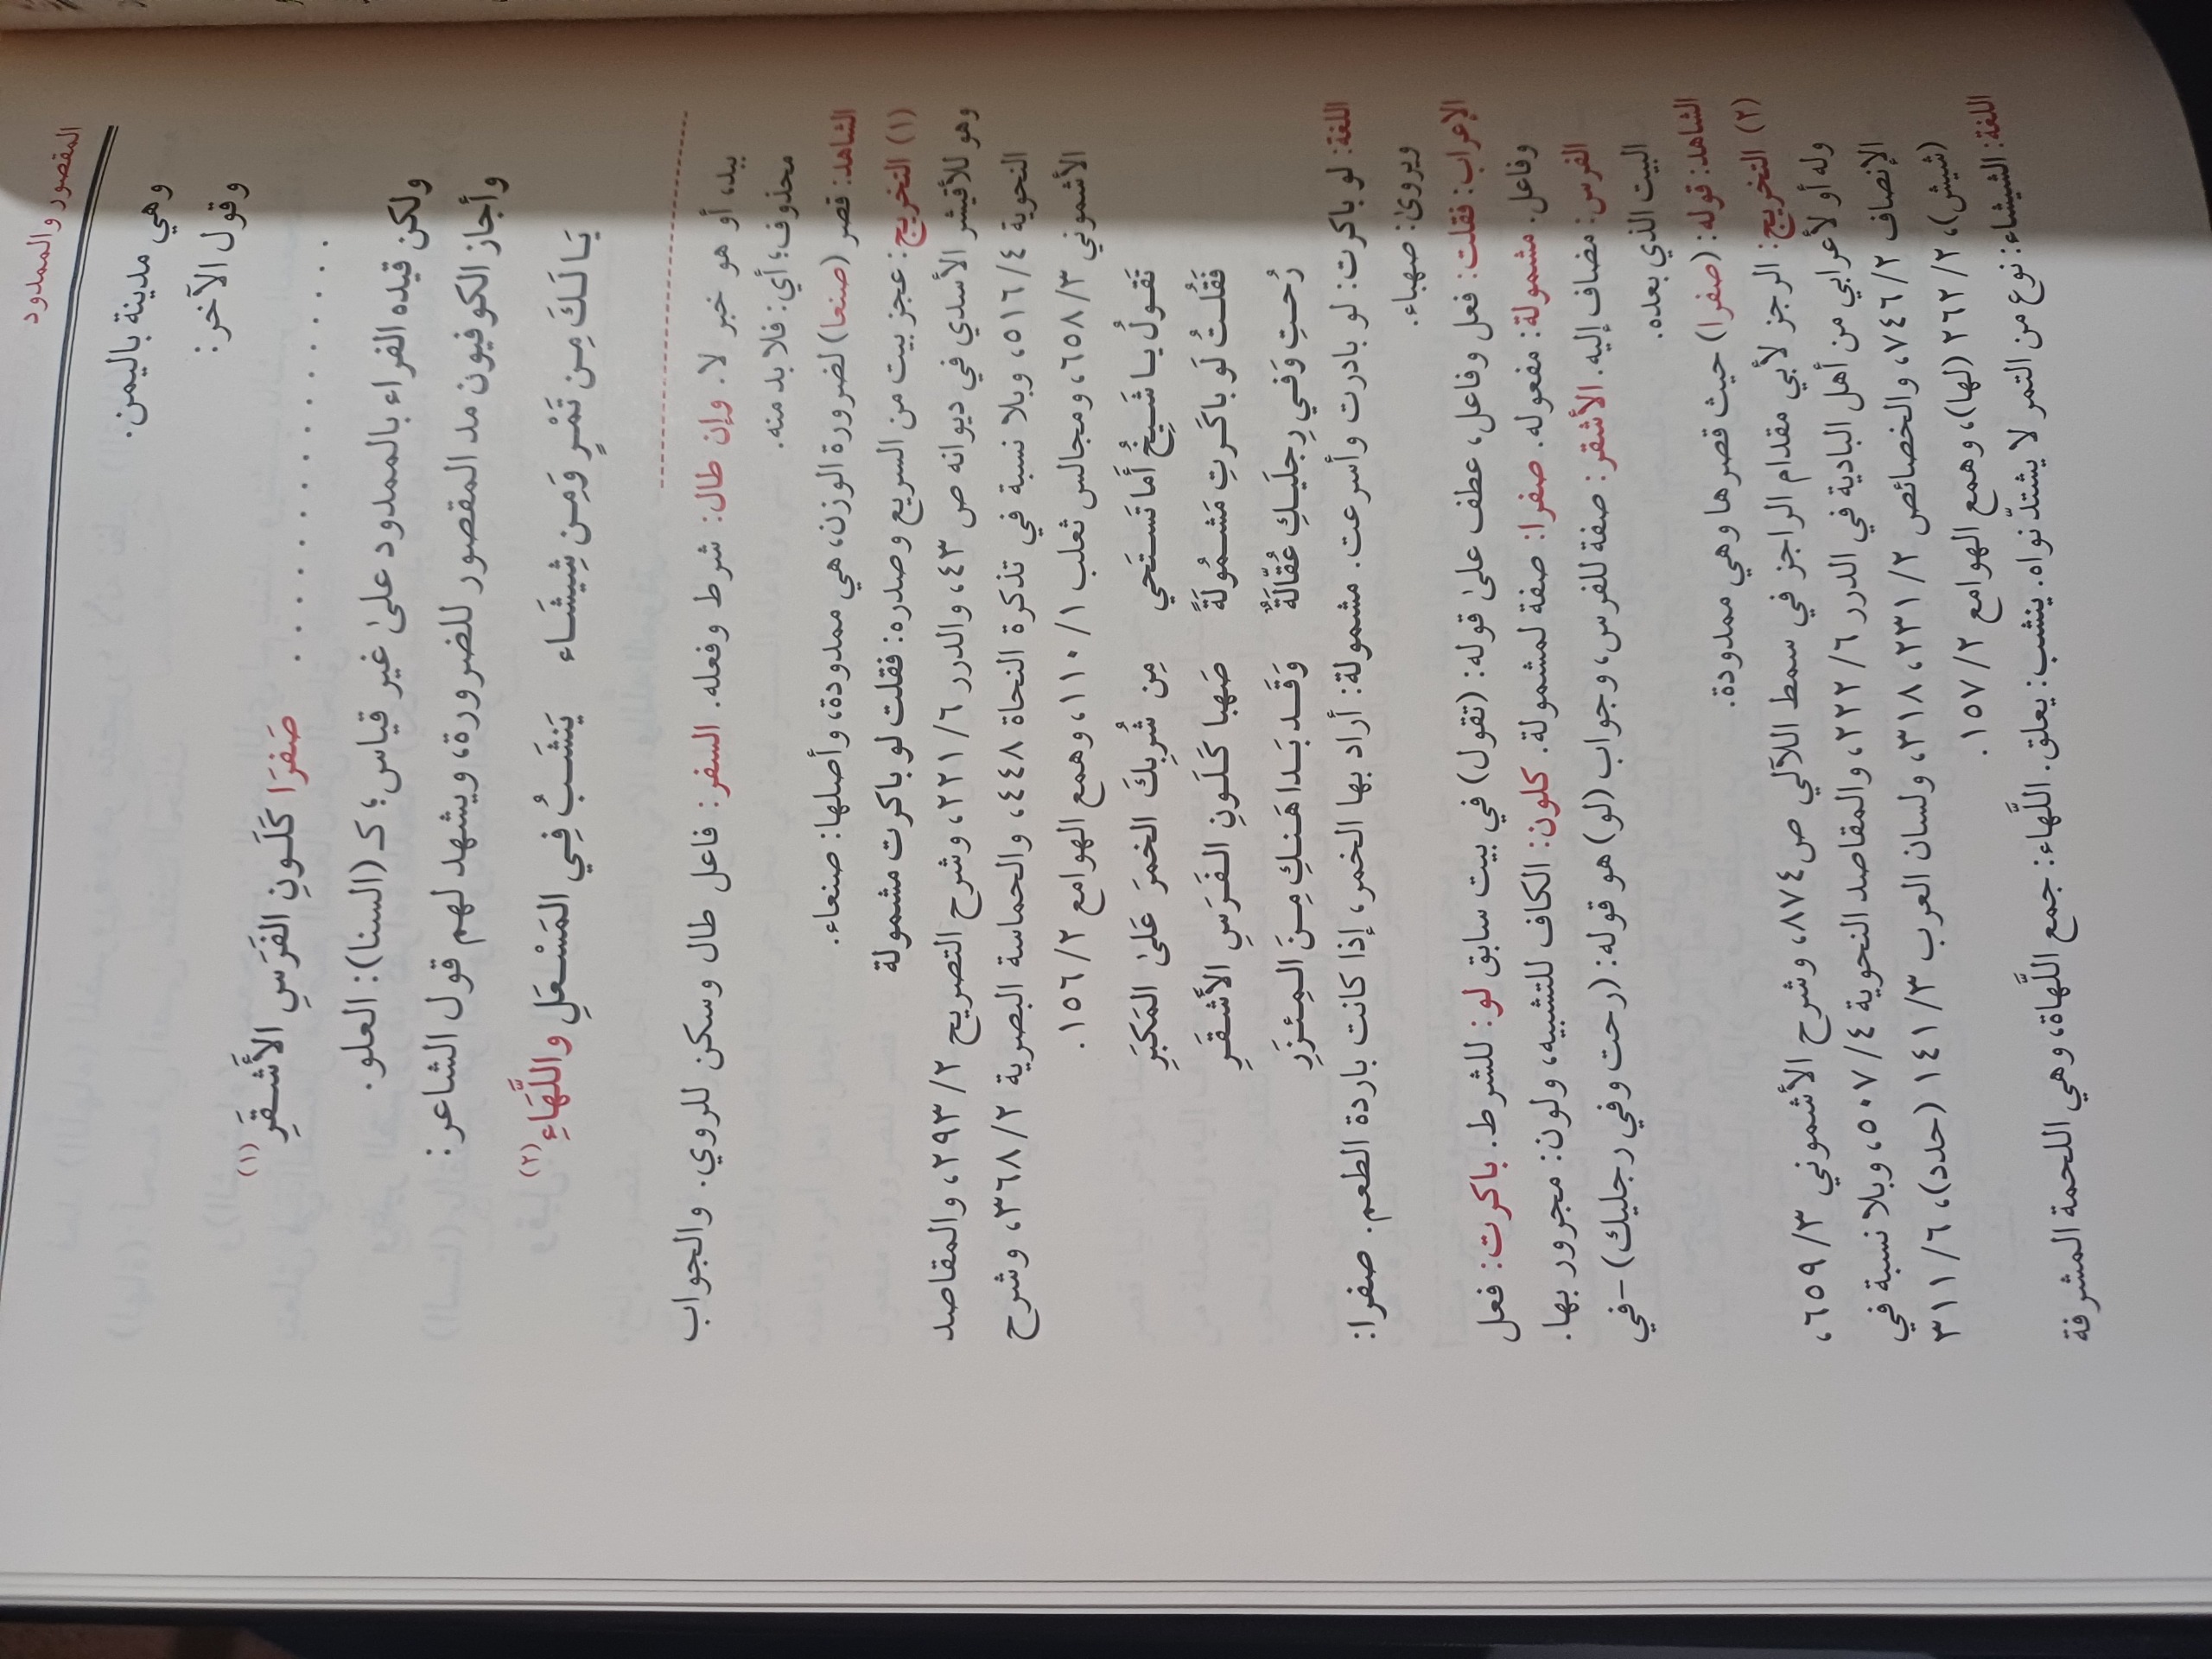 المقصور والممدود
وهي مدينة باليمن.
وقول الآخر:
. . . . . . . . . . . . صَفرَا كَلَونِ الفَرَسِ الأَشقَرِ (١)
ولكن قيده الفراء بالممدود علىٰ غير قياس؛ كـ (السنا): العلو.
وأجاز الكوفيون مد المقصور للضرورة، ويشهد لهم قول الشاعر:
يَا لَكَ مِن تَمْرٍ وَمِن شِيشَاء يَنشَبُ فِي المَسْعَلِ واللَّهَاءِ (٢)
بيد، أو هو خبر لا. وإن طال: شرط وفعله. السفر: فاعل طال وسكن للروي. والجواب
محذوف؛ أي: فلا بد منه.
الشاهد: قصر (صنعا) لضرورة الوزن، هي ممدودة، وأصلها: صنعاء.
(١) التخريج: عجز بيت من السريع وصدره: فقلت لو باكرت مشمولة
وهو للأقيشر الأسدي في ديوانه ص ٤٣، والدرر ٦/ ٢٢١، وشرح التصريح ٢/ ٢٩٣، والمقاصد
النحوية ٤/ ٥١٦، وبلا نسبة في تذكرة النحاة ٤٤٨، والحماسة البصرية ٢/ ٣٦٨، وشرح
الأشموني ٣/ ٦٥٨، ومجالس ثعلب ١/ ١١٠، وهمع الهوامع ٢/ ١٥٦.
تَقولُ يا شَيخُ أَما تَستَحي مِن شُربِكَ الخمرَ عَلىٰ المَكبَرِ
فَقُلتُ لَو باكَرتِ مَشمُولَةً صَهبا كَلَونِ الفَرَسِ الأَشقَرِ
رُحتِ وَفي رِجلَيكِ عُقّالَةٌ وَقَد بَدا هَنكِ مِنَ المِئزَرِ
اللغة: لو باكرت: لو بادرت وأسرعت. مشمولة: أراد بها الخمر، إذا كانت باردة الطعم. صفرا:
ويروىٰ: صهباء.
الإعراب: فقلت: فعل وفاعل، عطف علىٰ قوله: (تقول) في بيت سابق لو: للشرط. باكرت: فعل
وفاعل. مشمولة: مفعوله. صفرا: صفة لمشمولة. كلون: الكاف للتشبيه، ولون: مجرور بها.
الفرس: مضاف إليه. الأشقر: صفة للفرس، وجواب (لو) هو قوله: (رحت وفي رجليك) -في
البيت الذي بعده.
الشاهد: قوله: (صفرا) حيث قصرها وهي ممدودة.
(٢) التخريج: الرجز لأبي مقدام الراجز في سمط اللآلي ص ٨٧٤، وشرح الأشموني ٣/ ٦٥٩،
وله أو لأعرابي من أهل البادية في الدرر ٦/ ٢٢٢، والمقاصد النحوية ٤/ ٥٠٧، وبلا نسبة في
الإنصاف ٢/ ٧٤٦، والخصائص ٢/ ٢٣١، ٣١٨، ولسان العرب ٣/ ١٤١ (حدد)، ٦/ ٣١١
(شيش)، ٢/ ٢٦٢ (لها)، وهمع الهوامع ٢/ ١٥٧.
اللغة: الشيشاء: نوع من التمر لا يشتدّ نواه. ينشب: يعلق. اللَّهاء: جمع اللَّهاة، وهي اللحمة المشرفة